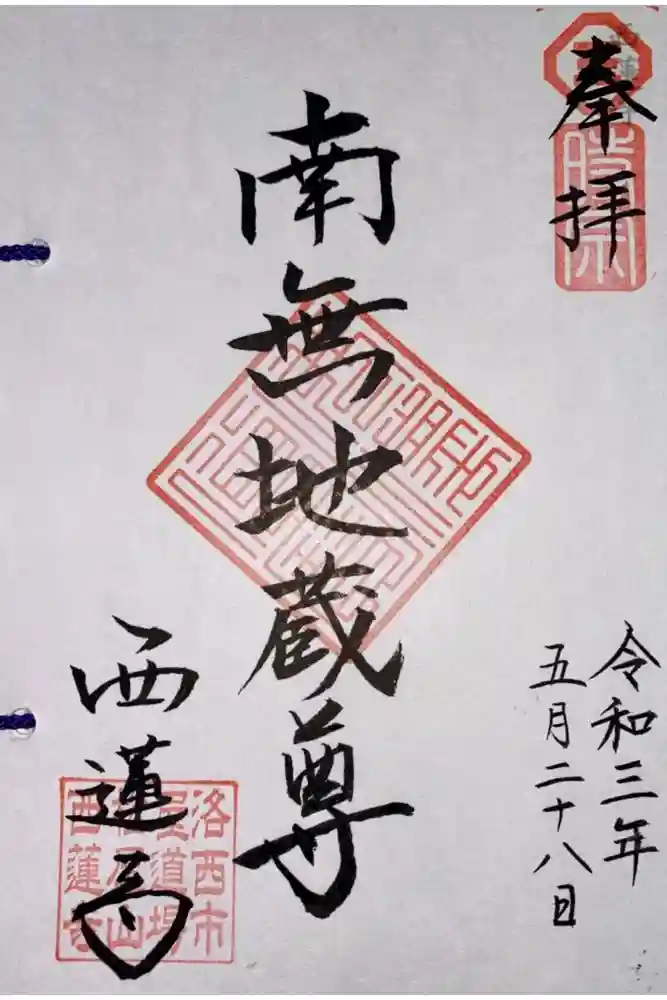 奉拝
令和三年
五月二十八日
南無地蔵尊
西蓮寺
洛西市
屋道場
西蓮寺
時宗